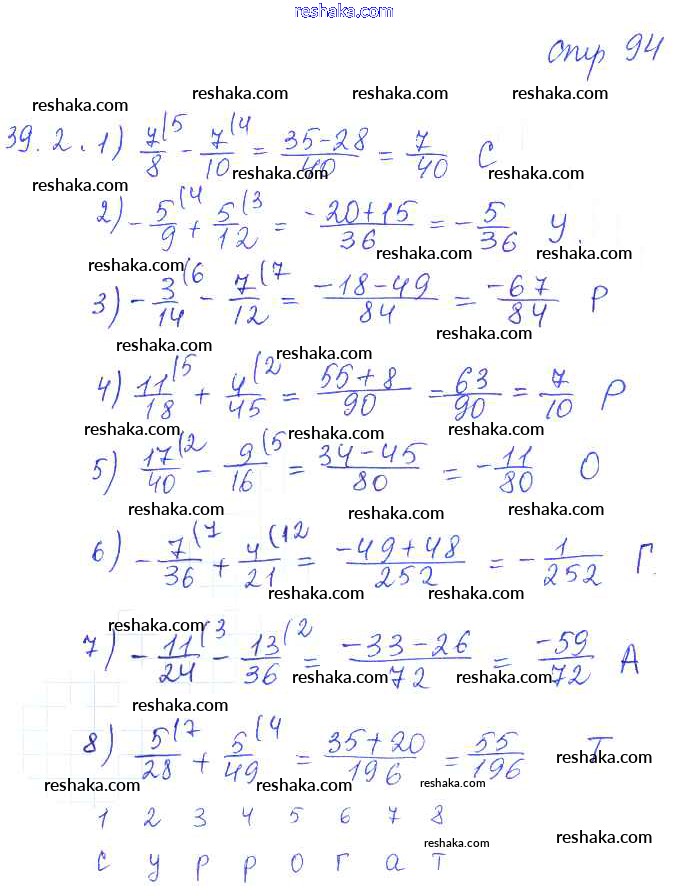 reshaka.com
стр 94
reshaka.com reshaka.com reshaka.com
39.2. 1) 7/8 (5 - 7/10 (4 = 35-28/40 = 7/40 С
reshaka.com reshaka.com reshaka.com
2) -5/9 (4 + 5/12 (3 = -20+15/36 = -5/36 У
reshaka.com reshaka.com reshaka.com
3) -3/14 (6 - 7/12 (7 = -18-49/84 = -67/84 Р
reshaka.com reshaka.com reshaka.com
4) 11/18 (5 + 4/45 (2 = 55+8/90 = 63/90 = 7/10 Р
reshaka.com reshaka.com reshaka.com
5) 17/40 (2 - 9/16 (5 = 34-45/80 = -11/80 О
reshaka.com reshaka.com reshaka.com
6) -7/36 (7 + 4/21 (12 = -49+48/252 = -1/252 Г
reshaka.com reshaka.com reshaka.com
7) -11/24 (3 - 13/36 (2 = -33-26/72 = -59/72 А
reshaka.com reshaka.com reshaka.com
8) 5/28 (7 + 5/49 (4 = 35+20/196 = 55/196 Т
reshaka.com reshaka.com reshaka.com reshaka.com
1 2 3 4 5 6 7 8
reshaka.com reshaka.com
С У Р Р О Г А Т